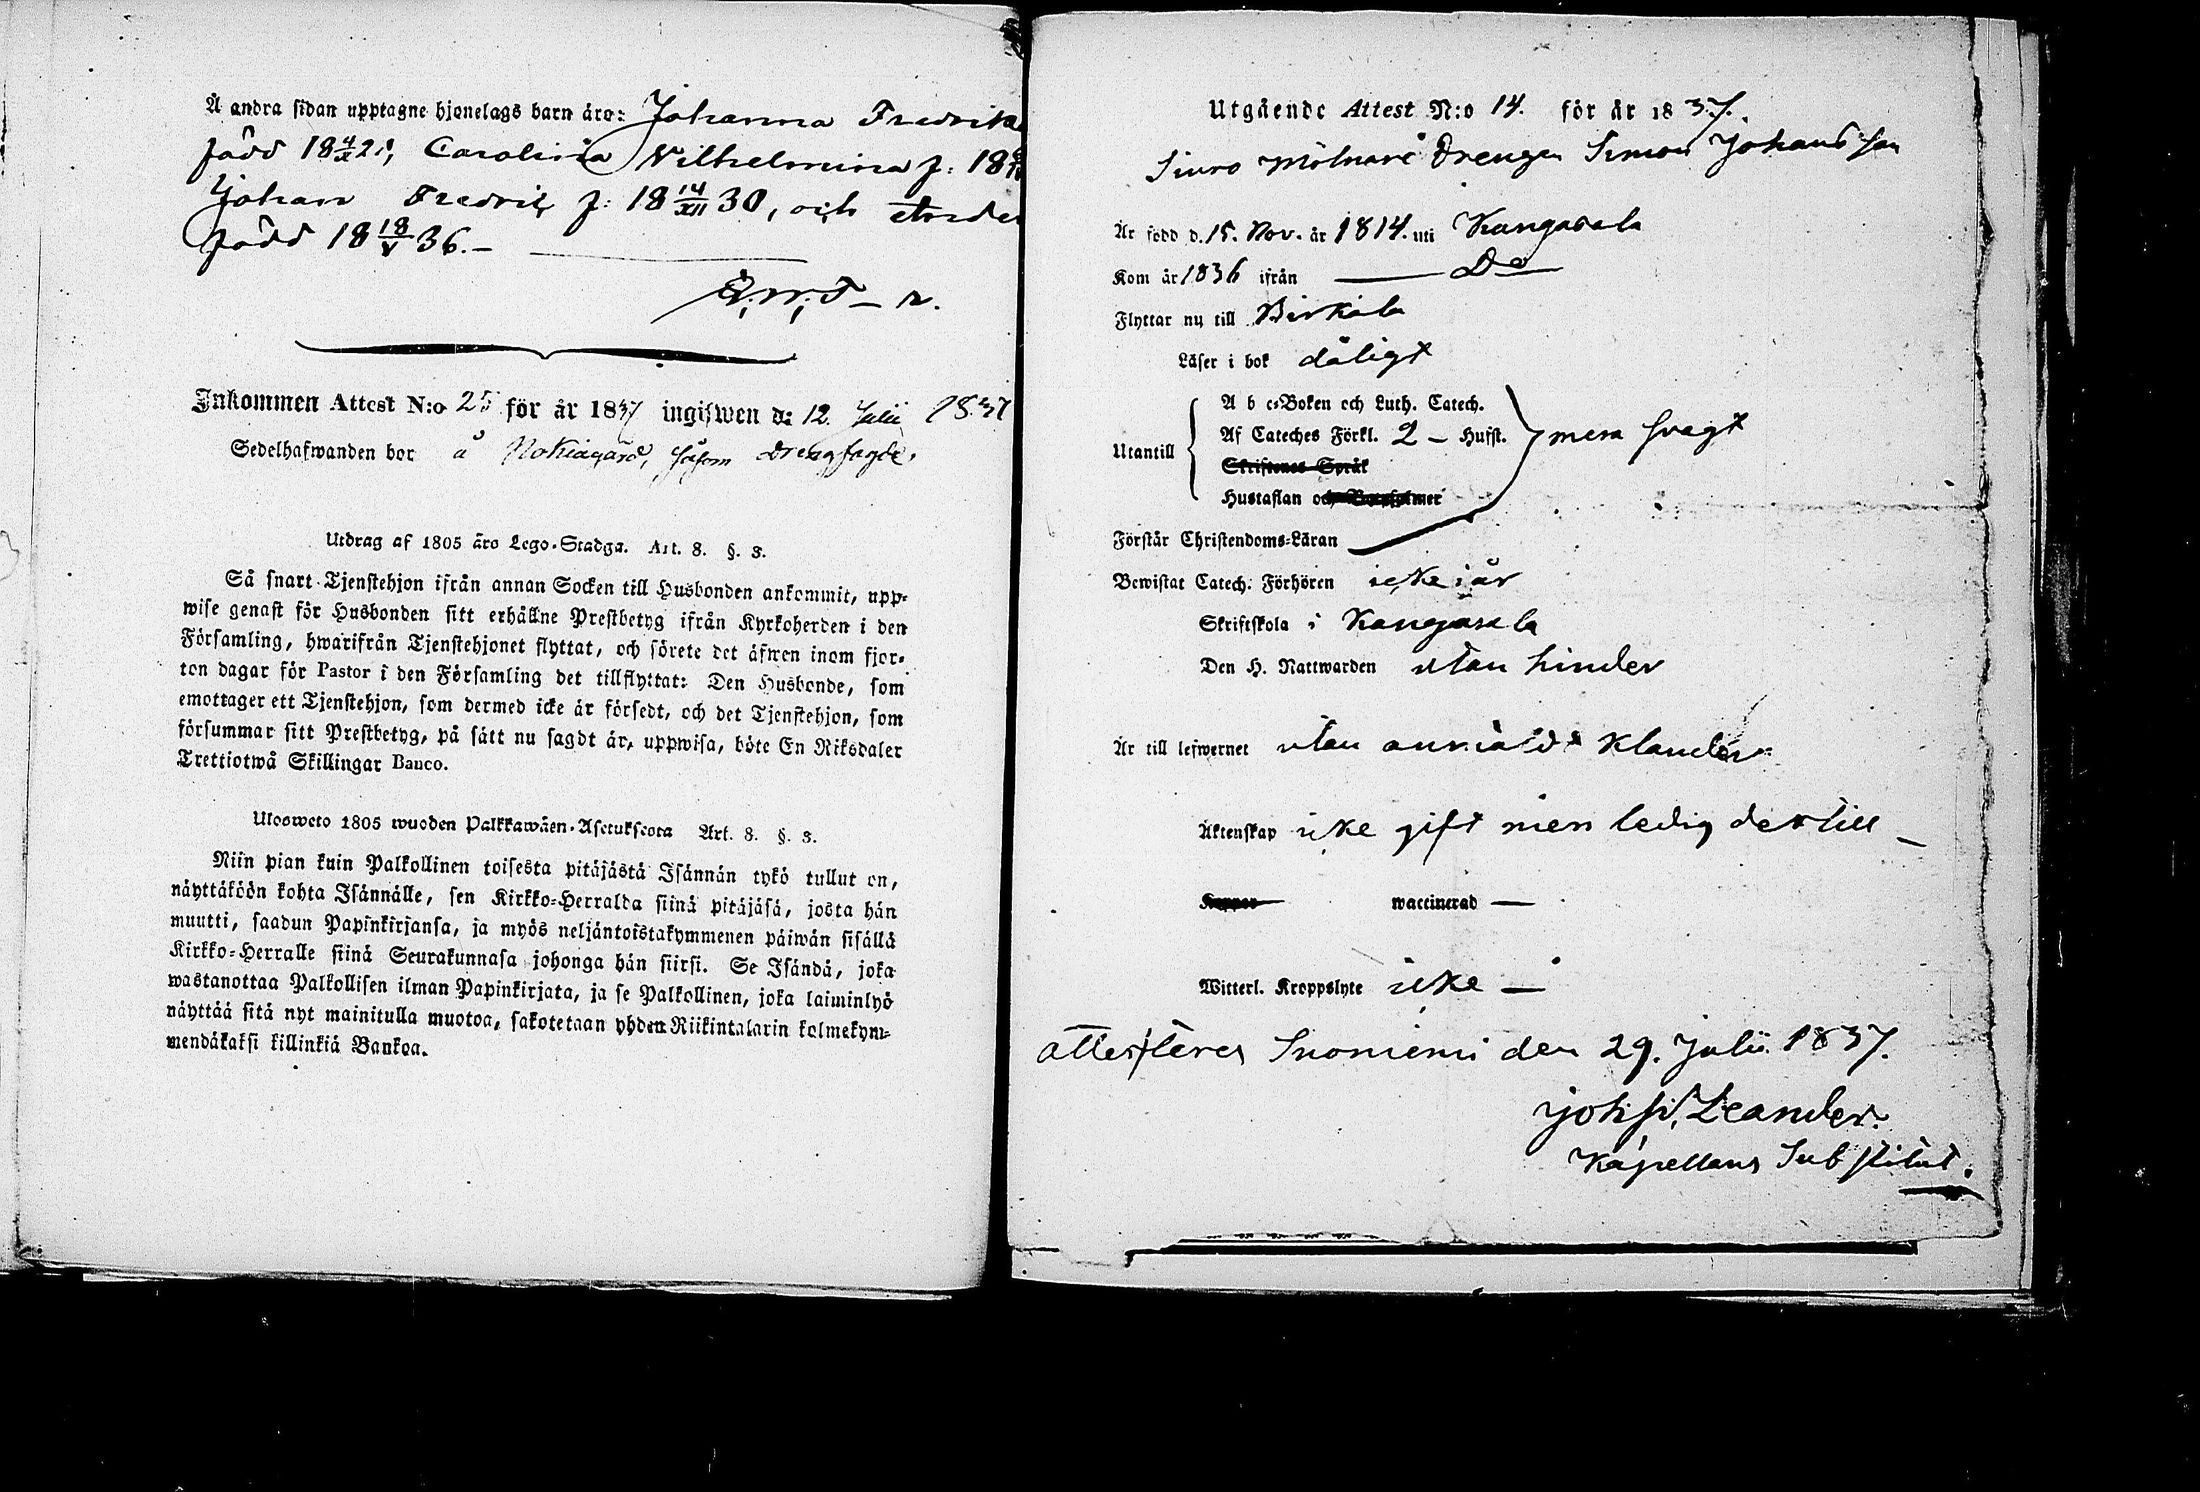 Å andra sidan upptagne hjonelags barn äro: Johanna Fredrika
född 18 4/x 2 , Carolina Wilhelmina f: 18
Johan Fredrik f: 18 14/XII 30, och
född 18 18/V 36.–
Inkommen Attest N:o 25 för år 1837 ingifwen d: 12 Julii 1837
Sedelhafwanden bor å Nokiagård, såsom drengfogde.
Utdrag af 1805 års Lego-Stadga. Art. 8. §. 3.
Så snart Tjenstehjon ifrån annan Socken till Husbonden ankommit, upp-
wise genast för Husbonden sitt erhållne Prestbetyg ifrån Kyrkoherden i den
Församling, hwarifrån Tjenstehjonet flyttat, och förete det äfwen inom fjor-
ton dagar för Pastor i den Församling det tillflyttat: Den Husbonde, som
emottager ett Tjenstehjon, som dermed icke är försedt, och det Tjenstehjon, som
försummar sitt Prestbetyg, på sätt nu sagdt är, uppwisa, böte En Riksdaler
Trettiotwå Skillingar Banco.
Ulosweto 1805 wuoden Palkkawäen-Asetuksesta Art. 8. §. 3.
Niin pian kuin Palkollinen toisesta pitäjästä Isännän tykö tullut on,
näyttäköön kohta Isännälle, sen Kirkko-Herralda siinä pitäjäsä, josta hän
muutti, saadun Papinkirjansa, ja myös neljäntoistakymmenen päiwän sisällä
Kirkko-Herralle siinä Seurakunnasa johonga hän siirsi. Se Isändä, joka
wastanottaa Palkollisen ilman Papinkirjata, ja se Palkollinen, joka laiminlyö
näyttää sitä nyt mainitulla muotoa, sakotetaan yhden Riikintalarin kolmekym-
mendäkaksi killinkiä Bankoa.
Utgående Attest N:o 14. för år 1837.
Siuro Mölnare Drengen Simon Johansson
Är född d. 15. Nov. år 1814. uti Kangasala
Kom år 1836 ifrån — Do —
Flyttar nu till Birkala
Läser i bok dåligt
Utantill
A b c-Boken och Luth. Catech.
Af Cateches Förkl. 2 – Hufst.
Skriftenes Språk
Hustaflan och
mera svagt
Förstår Christendoms-Läran
Bewistat Catech. Förhören icke i år
Skriftskola i Kangasala
Den H. Nattwarden utan hinder
Är till lefwernet utan anmäldt klander
Äktenskap icke gift men ledig dertill –
Koppor waccinerad —
Witterl. Kroppslyte icke —
attesteres Suoniemi den 29. Julii 1837.
Leander.
Kapellans Substitut.